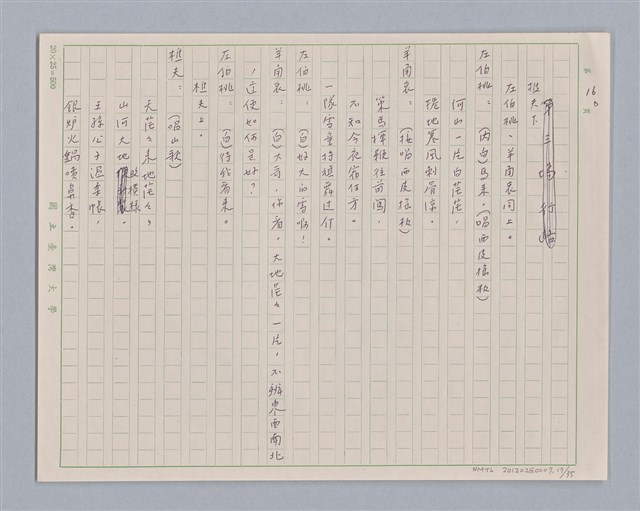 第 頁
16
第三場 行路
樵夫下
左伯桃、羊角哀同上。
左伯桃：（內白）馬來，（唱西皮搖板）
河山一片白茫茫，
捲地寒風刺骨涼。
羊角哀：（接唱西皮搖板）
策馬揮鞭往前闖，
不知今夜宿何方。
一隊雪童持旗舞过介。
左伯桃：（白）好大的雪啊！
羊角哀：（白）大哥，你看，大地茫々一片，不辨東西南北
，這便如何是好？
左伯桃：（白）待我看來。
樵夫上。
樵夫：（唱山歌）
天茫々來地茫々，
山河大地改模樣
王孫公子溫柔帳，
銀炉火鍋噴鼻香。
20×25=500
國立臺灣大學
NMTL 20120280007. 19/35